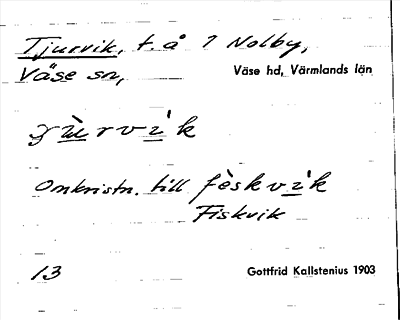 Tjurvik, t. å 7 Nolby,
Väse sn, Väse hd, Värmlands län
ʒùrvìk
Omkristn. till fèskvìk
Fiskvik
13 Gottfrid Kallstenius 1903